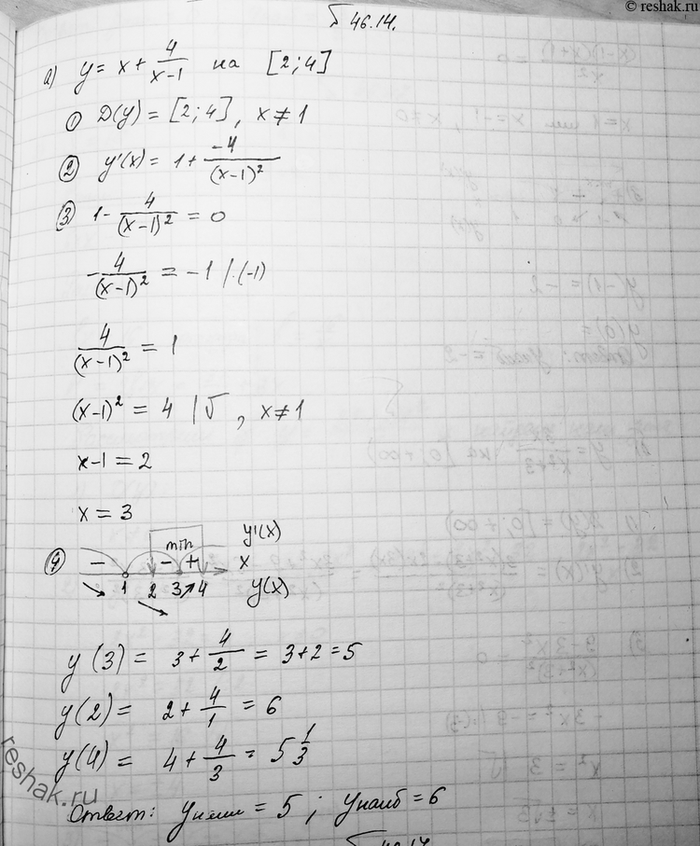 © reshak.ru
46.14.
а) y = x + 4/(x-1) на [2;4]
① D(y) = [2;4], x ≠ 1
② y'(x) = 1 + -4/(x-1)²
③ 1 - 4/(x-1)² = 0
-4/(x-1)² = -1 |·(-1)
4/(x-1)² = 1
(x-1)² = 4 |√ , x ≠ 1
x-1 = 2
x = 3
④ min y'(x)
− − + x
1 2 3 4 y(x)
y(3) = 3 + 4/2 = 3+2 = 5
y(2) = 2 + 4/1 = 6
y(4) = 4 + 4/3 = 5 1/3
reshak.ru
Ответ: yнаим = 5 ; yнаиб = 6